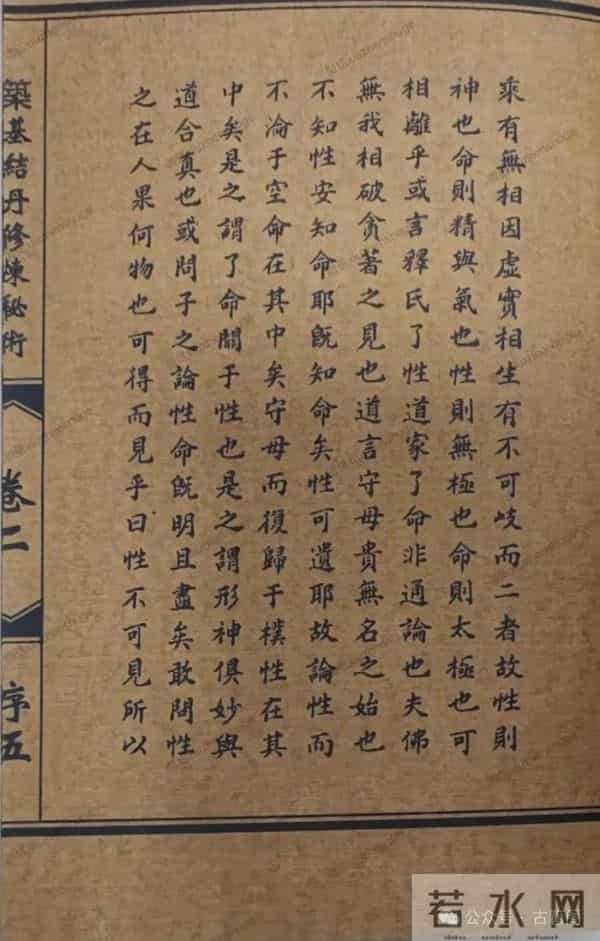 乘有無相因虛實相生有不可歧而二者故性則
神也命則精與氣也性則無極也命則太極也可
相離乎或言釋氏了性道家了命非通論也夫佛
無我相破貪著之見也道言守母貴無名之始也
不知性安知命耶既知命矣性可遺耶故論性而
不淪于空命在其中矣守母而復歸于樸性在其
中矣是之謂了命關于性也是之謂形神俱妙與
道合真也或問子之論性命既明且盡矣敢問性
之在人果何物也可得而見乎曰性不可見所以
築基結丹修煉秘術
卷二
序五
若水网
公众号